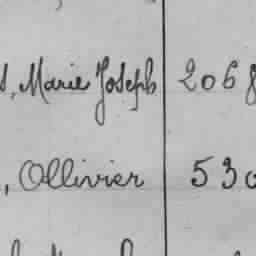 Marie Joseph 2068
, Ollivier 530